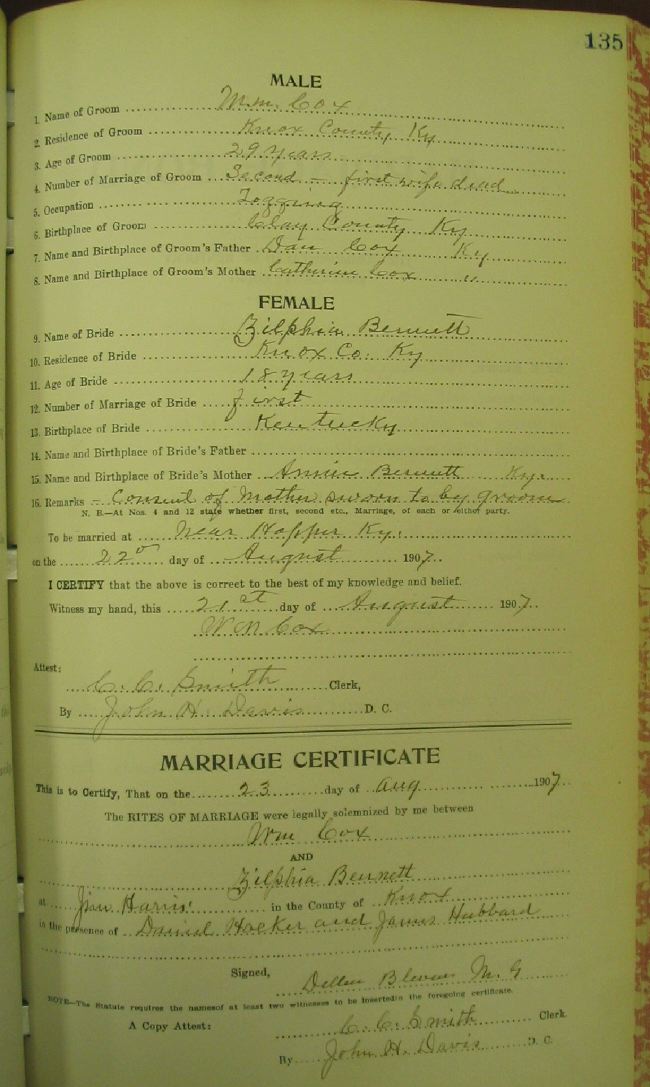 135
MALE
1. Name of Groom Wm. Cox
2. Residence of Groom Knox County Ky
3. Age of Groom 29 years
4. Number of Marriage of Groom Second – first wife dead
5. Occupation Logging
6. Birthplace of Groom Clay County Ky
7. Name and Birthplace of Groom's Father Dan Cox Ky
8. Name and Birthplace of Groom's Mother Catherine Cox "
FEMALE
9. Name of Bride Zilphia Bennett
10. Residence of Bride Knox Co. Ky
11. Age of Bride 18 years
12. Number of Marriage of Bride first
13. Birthplace of Bride Kentucky
14. Name and Birthplace of Bride's Father
15. Name and Birthplace of Bride's Mother Annie Bennett Ky.
16. Remarks – Consent of Mother sworn to by groom
N. B.—At Nos. 4 and 12 state whether first, second etc., Marriage, of each or either party.
To be married at Near Hopper Ky.
on the 22" day of August 1907.
I CERTIFY that the above is correct to the best of my knowledge and belief.
Witness my hand, this 21st day of August 1907
Wm Cox
Attest:
C. C. Smith Clerk,
By John H. Davis D. C.
MARRIAGE CERTIFICATE
This is to Certify, That on the 23 day of Aug 1907
The RITES OF MARRIAGE were legally solemnized by me between
Wm Cox
AND
Zilphia Bennett
at Jim Harris' in the County of Knox
in the presence of Daniel Hocker and James Hubbard
Signed,
Blevins M. G
NOTE—The Statute requires the names of at least two witnesses to be inserted in the foregoing certificate.
A Copy Attest: C. C. Smith Clerk
By John H. Davis D. C.